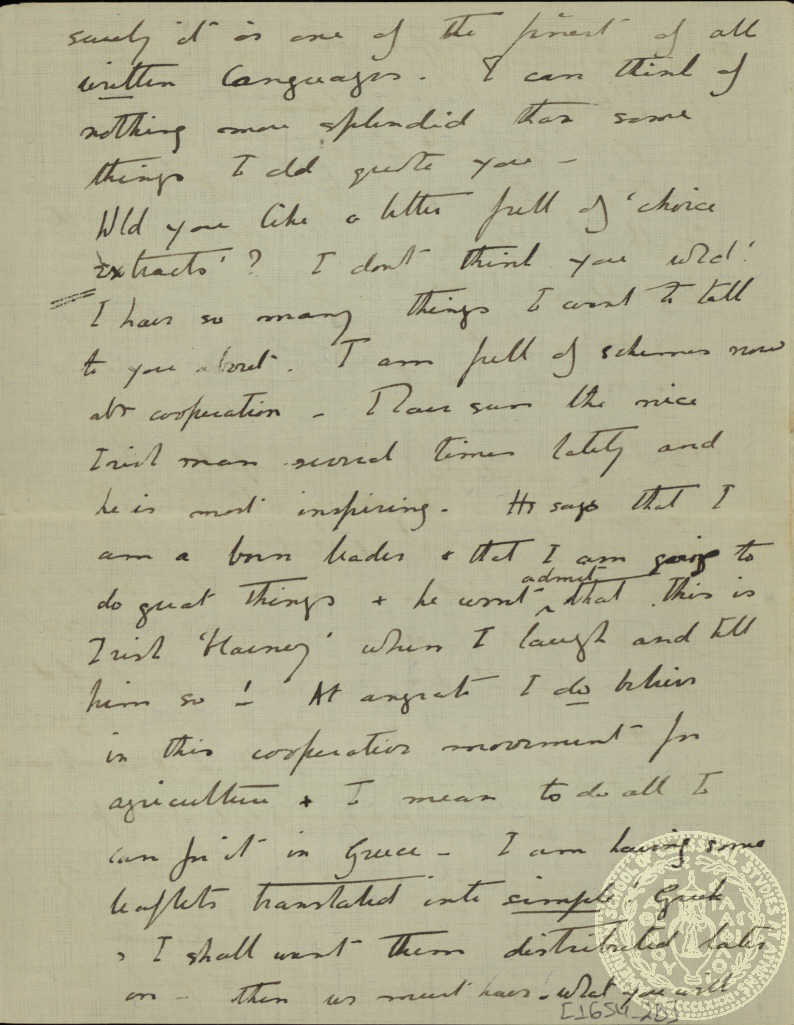 surely it is one of the finest of all
written languages. I can think of
nothing more splendid than some
things I cld quote you –
Wld you like a letter full of 'choice
extracts'? I don't think you wld!
I have so many things I want to talk
to you about. I am full of schemes now
abt cooperation – I have seen the nice
Irish man several times lately and
he is most inspiring. He says that I
am a born leader & that I am going to
do great things & he wont admit that this is
Irish 'blarney' when I laugh and tell
him so! At anyrate I do believe
in this cooperative movement for
agriculture & I mean to do all I
can for it in Greece – I am having some
leaflets translated into simple! Greek
& I shall want them distributed later
on – then we must have what you will
[1654_2B]
SCHOOL OF CLASSICAL STUDIES